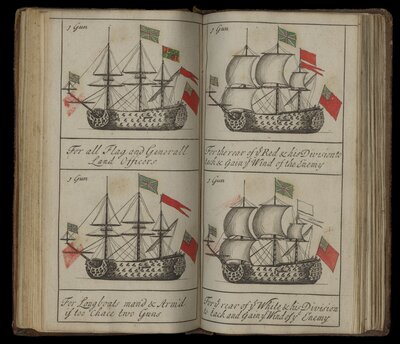 1 Gun
For all Flag and Generall
Land Officers
1 Gun
For Longboats man'd & Arm'd
if too Chace two Guns
1 Gun
For the rear of ye Red & his Division to
tack & Gain ye Wind of the Enemy
1 Gun
For ye rear of ye White & his Division
to tack and Gain ye Wind of ye Enemy